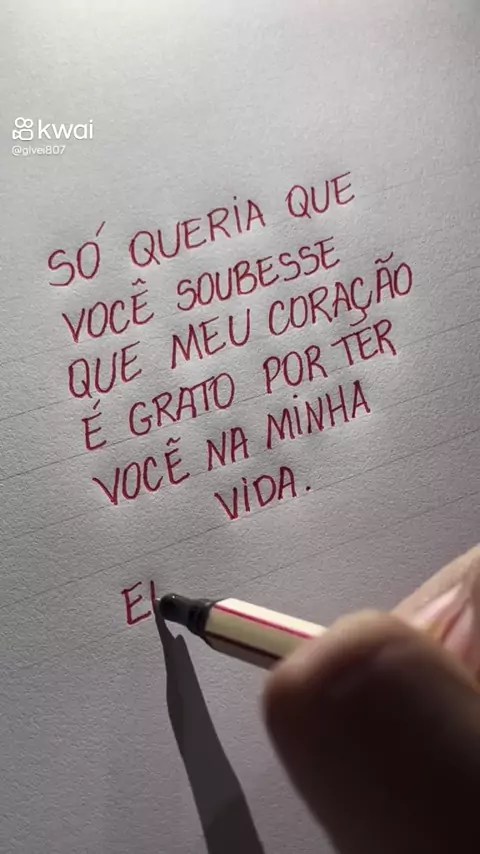 kwai
@givei807
SÓ QUERIA QUE
VOCÊ SOUBESSE
QUE MEU CORAÇÃO
É GRATO POR TER
VOCÊ NA MINHA
VIDA.